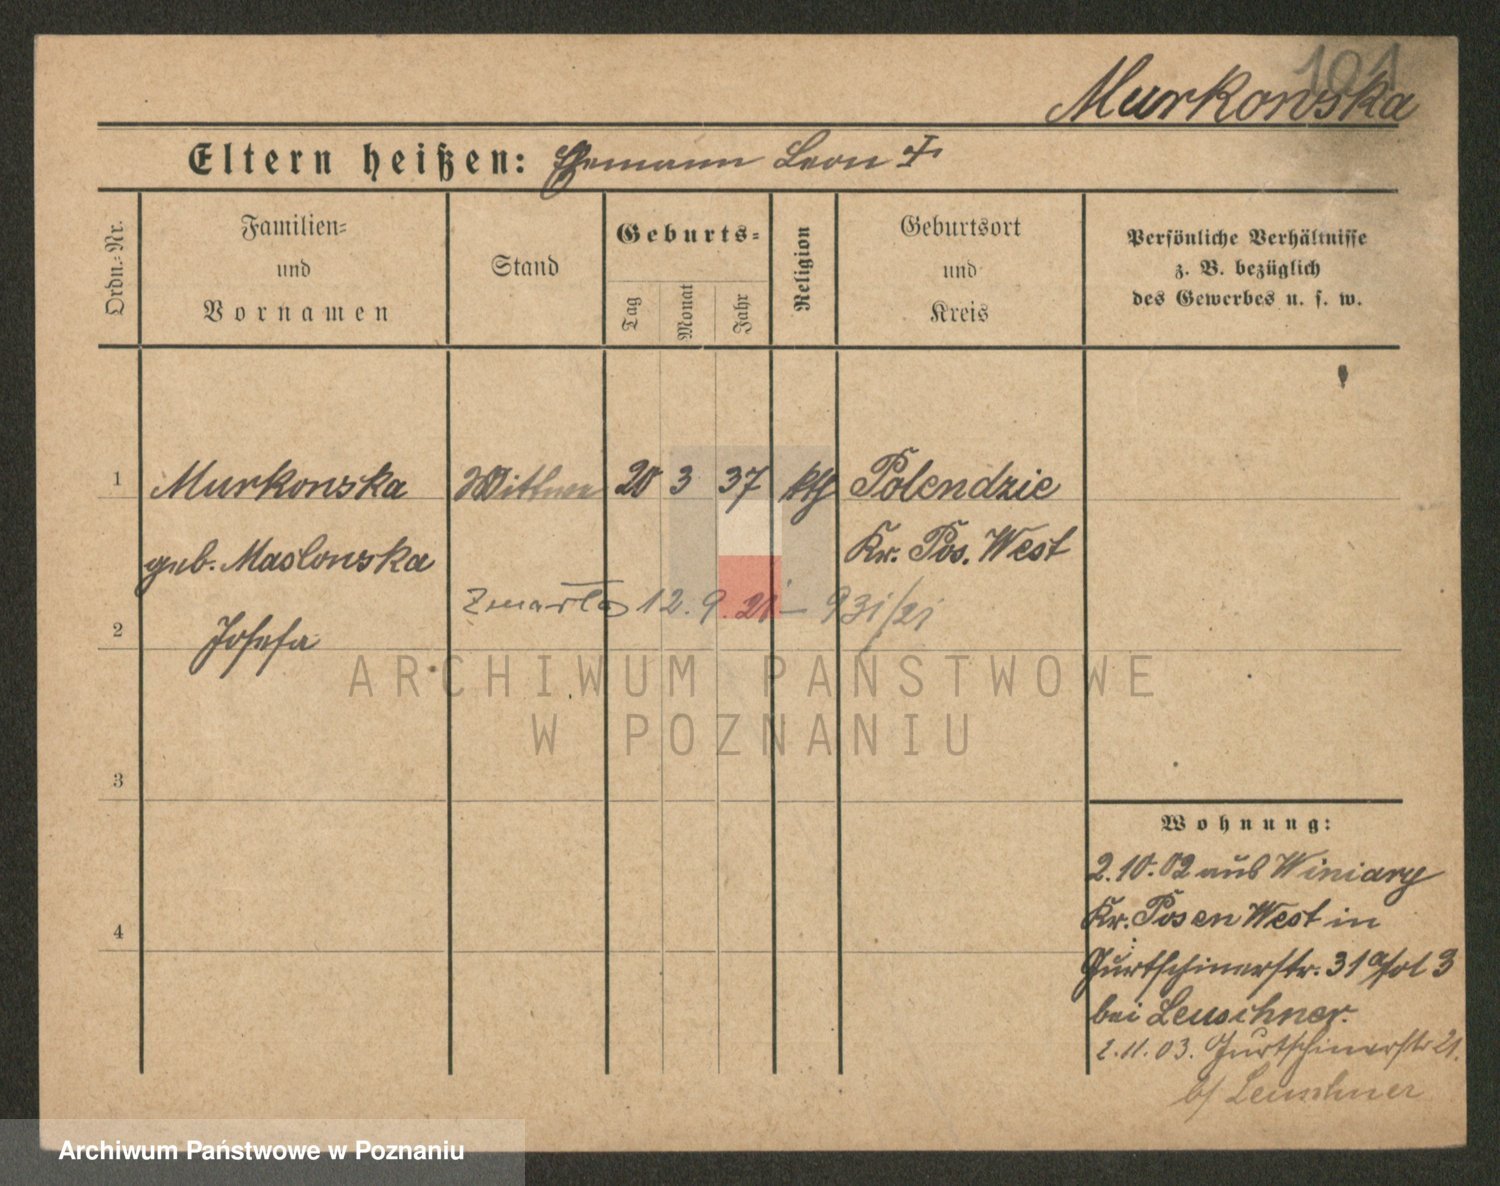 101
Murkonska
Eltern heißen: Ehemann Leon †
Ordn.-Nr.
Familien-
und
Vornamen
Stand
Geburts-
Tag
Monat
Jahr
Religion
Geburtsort
und
Kreis
Persönliche Verhältnisse
z. B. bezüglich
des Gewerbes u. s. w.
1 Murkonska Wittwe 20 3 37 kth Polendzie
geb. Maslonska Kr. Pos. West
Zmarła 12. 9. 21 — 931/21
2 Josefa
ARCHIWUM PAŃSTWOWE
W POZNANIU
3
4
Wohnung:
2.10.02 aus Winiary
Kr. Posen West in
Jurtschinerstr. 31 3
bei Leuschner.
2.11.03. Jurtschinerstr 21.
b/ Leuschner
Archiwum Państwowe w Poznaniu